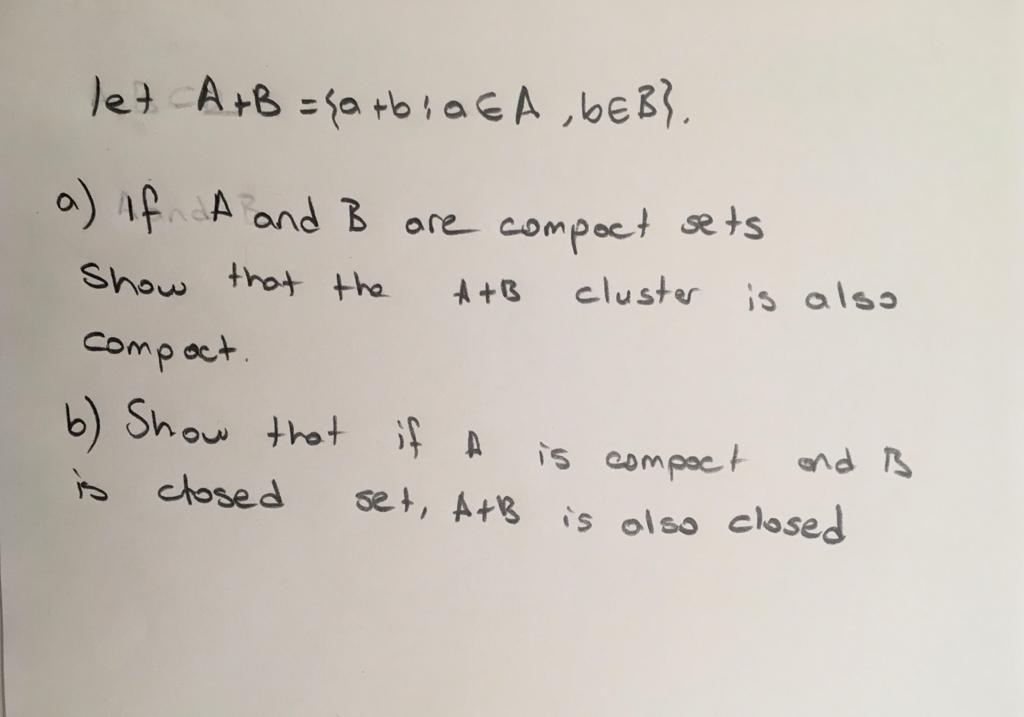 let A+B = {a+b : a∈A, b∈B}.
a) If A and B are compact sets
Show that the A+B cluster is also
compact.
b) Show that if A is compact and B
is closed set, A+B is also closed